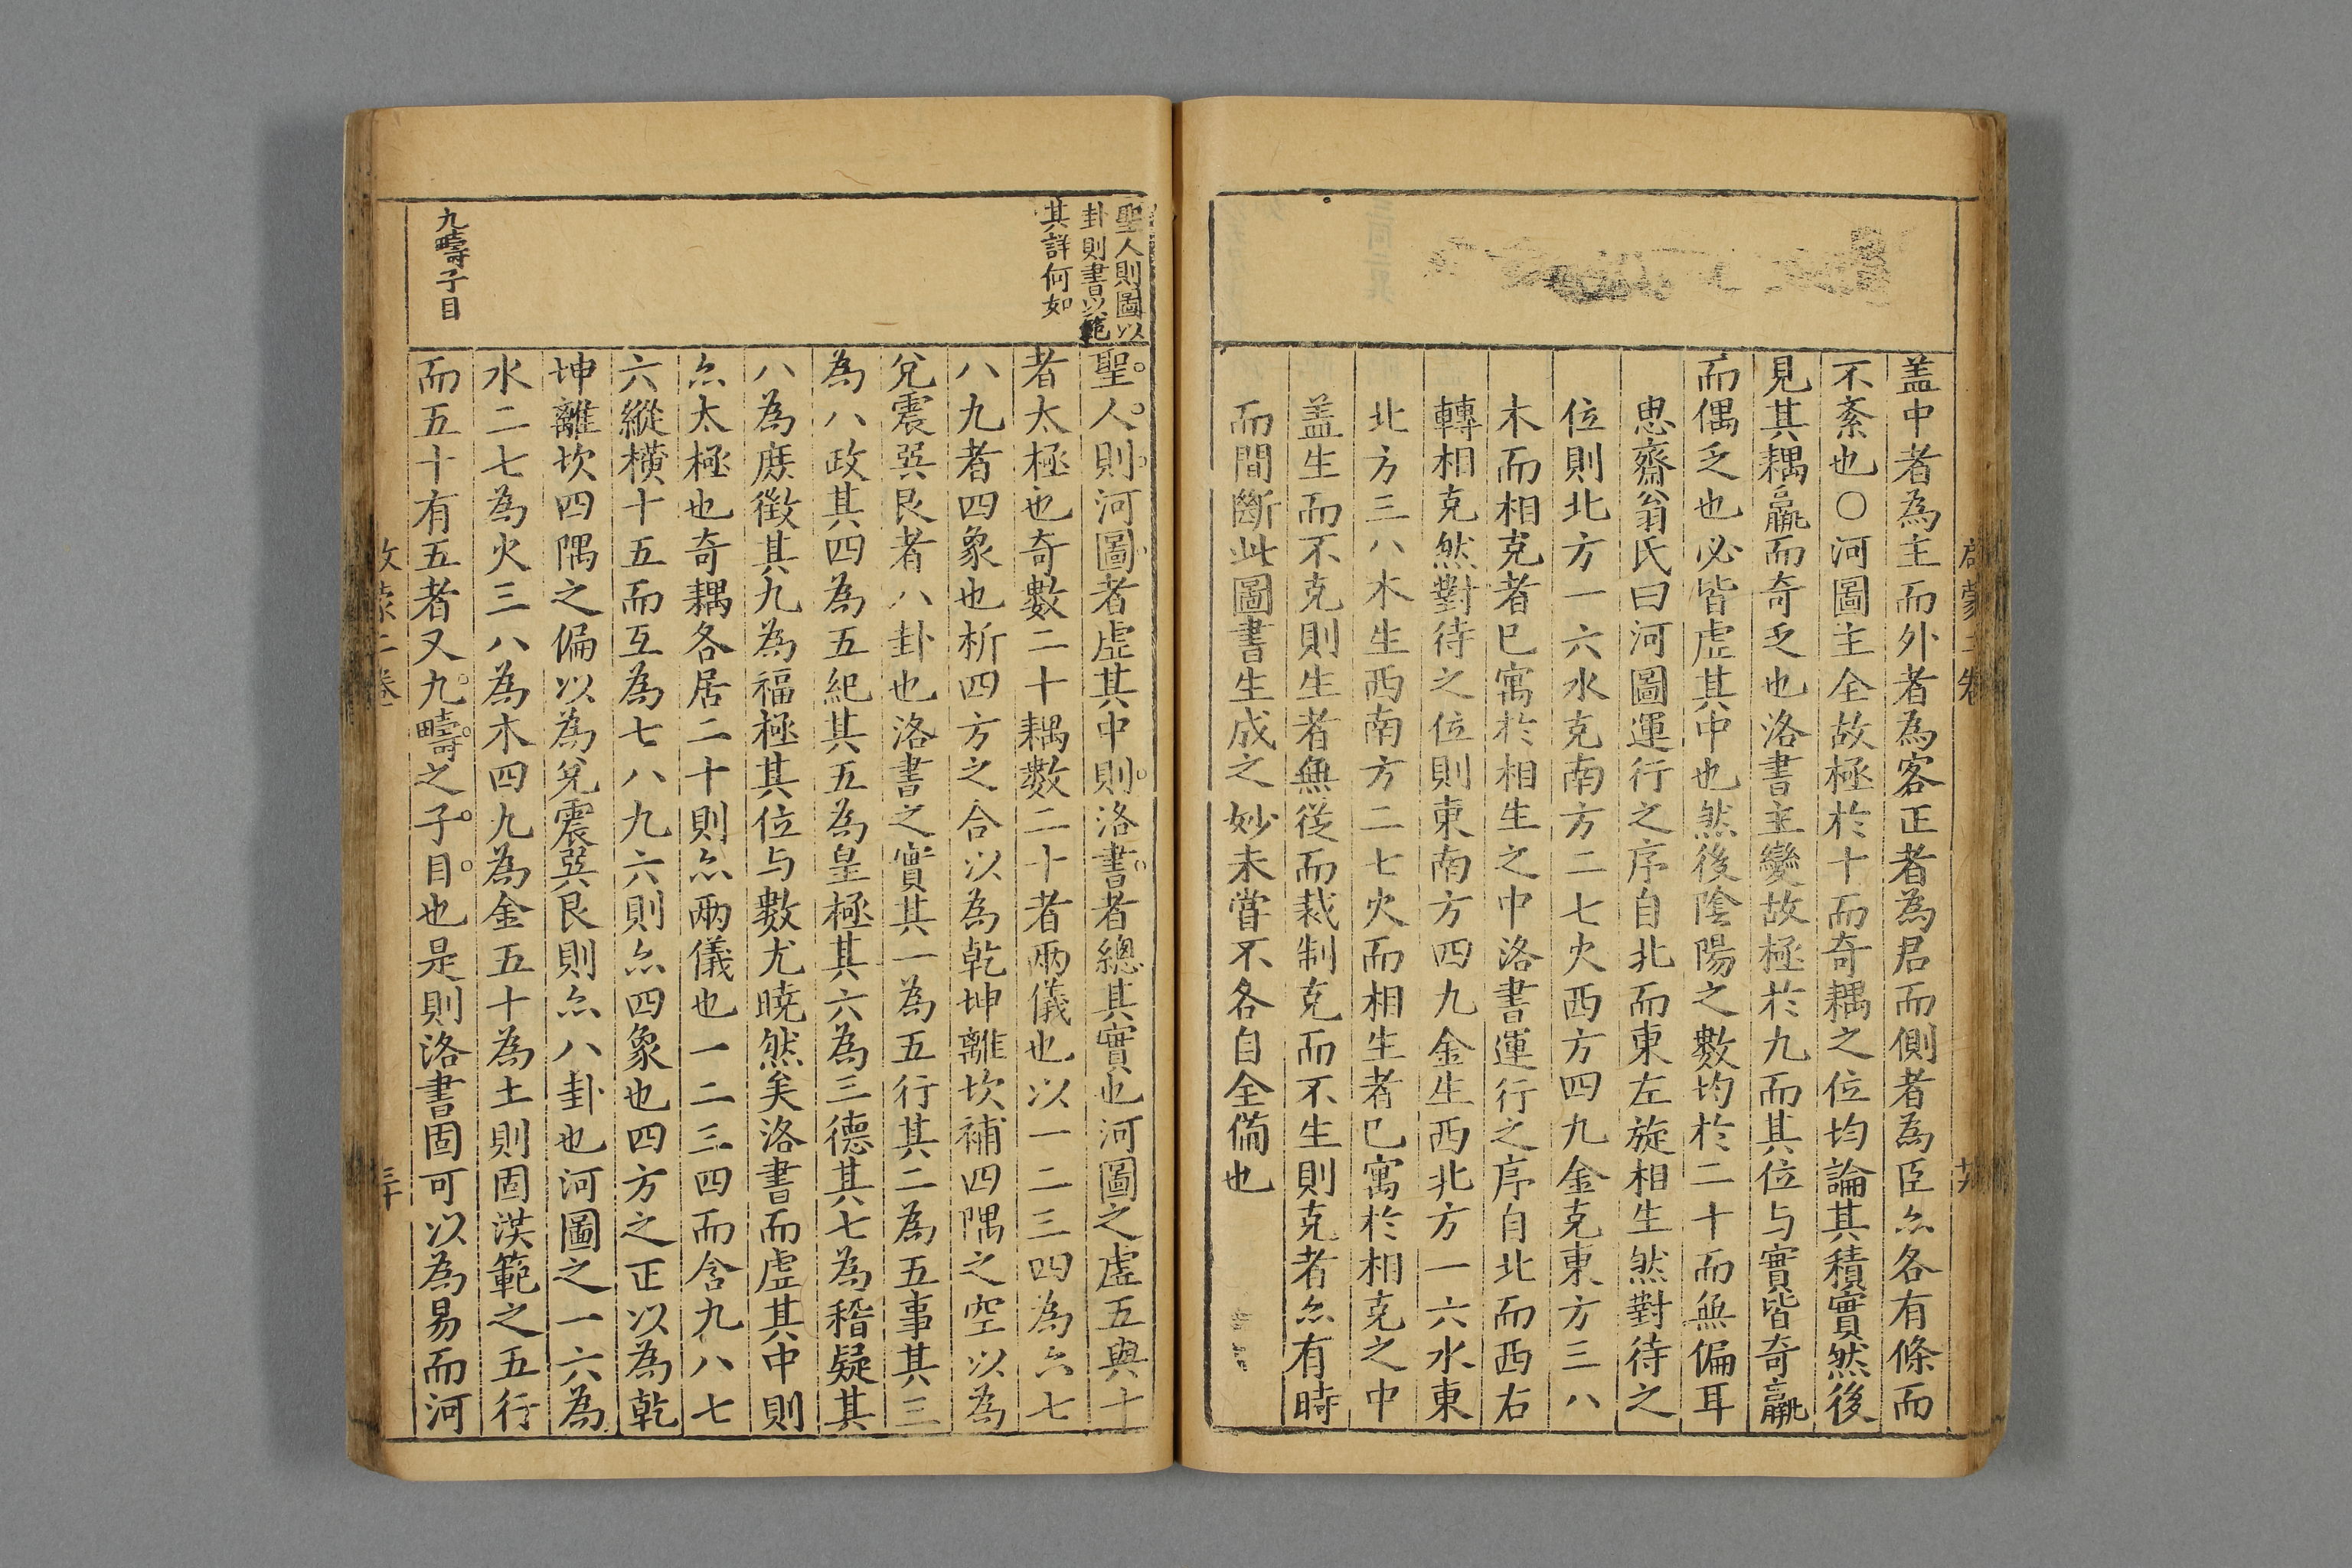 盖中者為主而外者為客正者為君而側者為臣亦各有條而
不紊也〇河圖主全故極於十而奇耦之位均論其積實然後
見其耦贏而奇乏也洛書主變故極於九而其位与實皆奇贏
而偶乏也必皆虛其中也然後陰陽之數均於二十而無偏耳
思齋翁氏曰河圖運行之序自北而東左旋相生然對待之
位則北方一六水克南方二七火西方四九金克東方三八
木而相克者已寓於相生之中洛書運行之序自北而西右
轉相克然對待之位則東南方四九金生西北方一六水東
北方三八木生西南方二七火而相生者已寓於相克之中
盖生而不克則生者無從而裁制克而不生則克者亦有時
而間斷此圖書生成之妙未甞不各自全俻也
聖人則圖以
卦則書以範
其詳何如
聖人則河圖者虛其中則洛書者總其實也河圖之虛五與十
者太極也奇數二十耦數二十者兩儀也以一二三四為六七
八九者四象也析四方之合以為乾坤離坎補四隅之空以為
兌震巽艮者八卦也洛書之實其一為五行其二為五事其三
為八政其四為五紀其五為皇極其六為三德其七為稽疑其
八為庶徵其九為福極其位与數尤曉然矣洛書而虛其中則
亦太極也奇耦各居二十則亦兩儀也一二三四而含九八七
六縱橫十五而互為七八九六則亦四象也四方之正以為乾
坤離坎四隅之偏以為兌震巽艮則亦八卦也河圖之一六為
水二七為火三八為木四九為金五十為土則固洪範之五行
而五十有五者又九疇之子目也是則洛書固可以為易而河
九疇子目